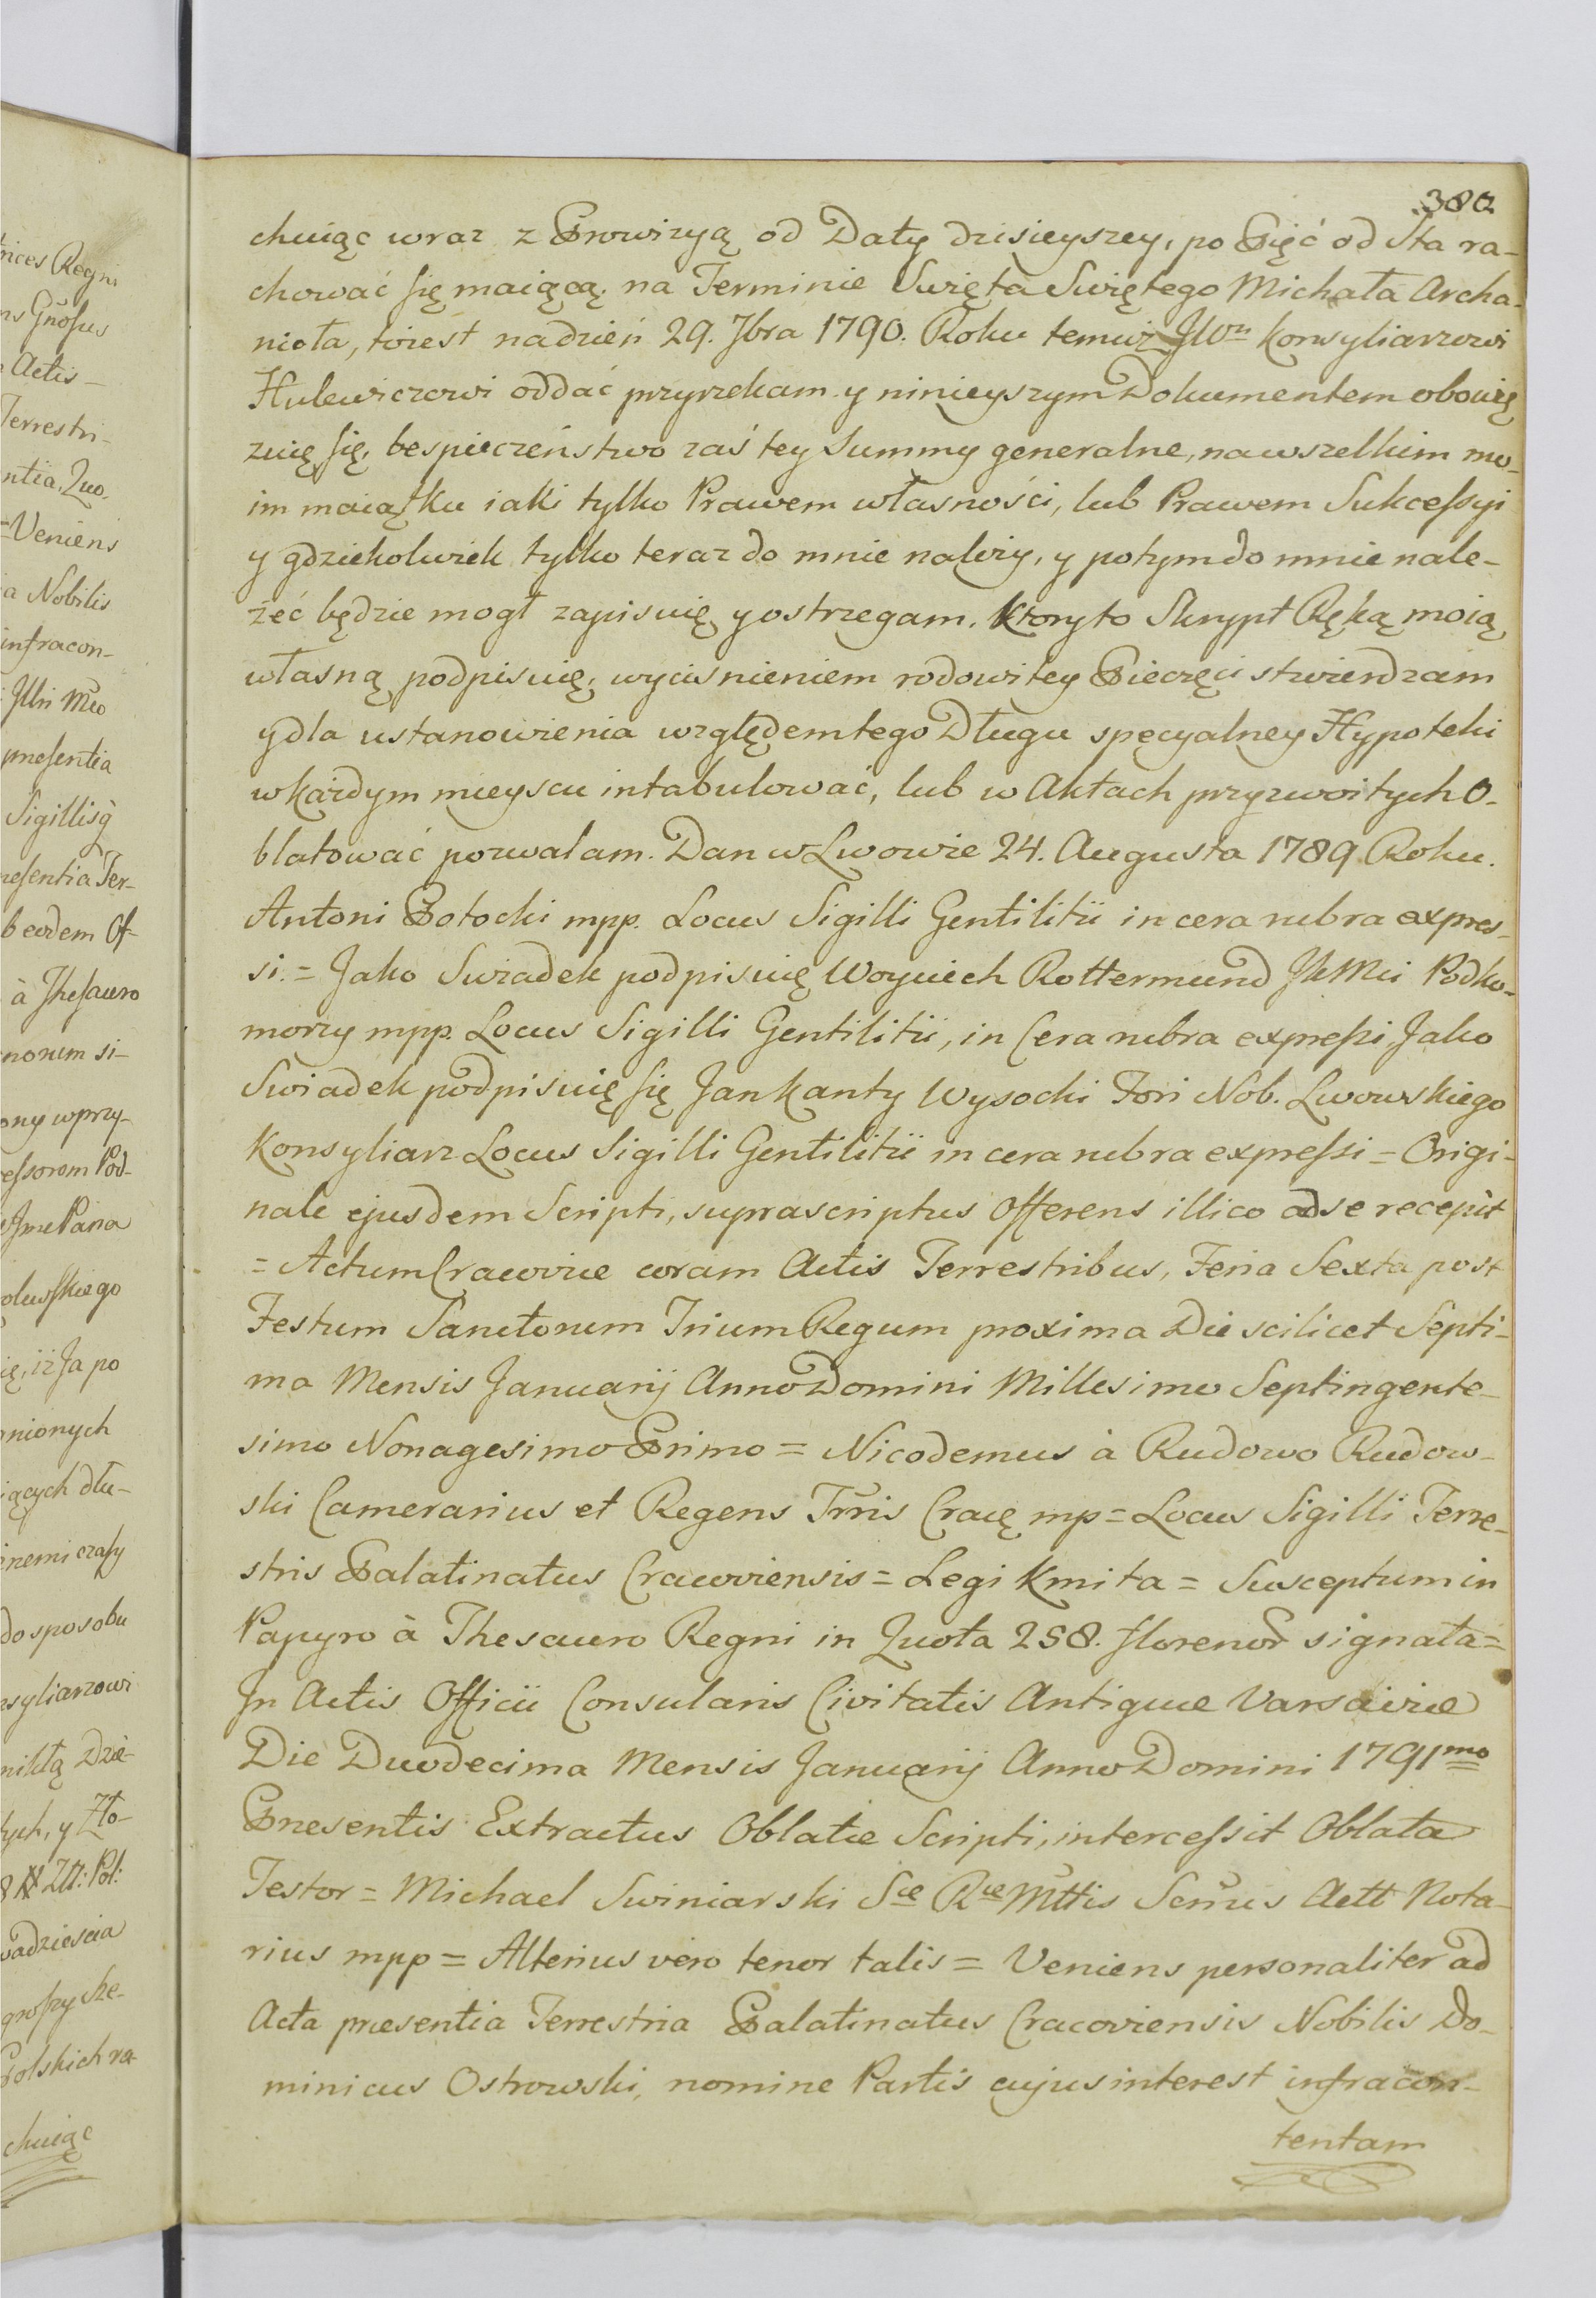 380
chuiąc wraz z Prowizyą od Daty dzisieyszey, po Pięć od Sta ra-
chować się maiącą, na Terminie Swięta Swiętego Michała Archa-
nioła, toiest nadzień 29. 7bra 1790. Roku temuż JWu Konsyliarzowi
Hulewiczowi oddać przyrzekam y ninieyszym Dokumentem obowię
zuię się, bespieczeństwo zaś tey Summy generalne, nawszelkim mo-
im maiątku iaki tylko Prawem własności, lub Prawem Sukcessyi
y gdziekolwiek tylko teraz do mnie należy, y potym do mnie nale-
żeć będzie mogł zapisuię y ostrzegam. Ktory to Skrypt Ręką moią
własną podpisuię, wycisnieniem rodowitey Pieczęci stwierdzam
ydla ustanowienia względemtego Długu specyalney Hypoteki
wkażdym mieyscu intabulować, lub w Aktach przyzwoitych O-
blatować pozwalam. Dan w Lwowie 24. Augusta 1789 Roku.
Antoni Potocki mpp. Locus Sigilli Gentilitii in cera rubra expres-
si. = Jako Swiadek podpisuię Woyciech Rottermund JKMci Podko-
morzy mpp. Locus Sigilli Gentilitii, in Cera rubra expressi, Jako
Swiadek podpisuię się Jan Kanty Wysocki Fori Nob. Lwowskiego
Konsyliarz Locus Sigilli Gentilitii in cera rubra expressi = Origi-
nale ejusdem Scripti, suprascriptus Offerens illico ad se recepit
= Actum Cracoviæ coram Actis Terrestribus, Feria Sexta post
Festum Sanctorum Trium Regum proxima Die scilicet Septi-
ma Mensis Januarij Anno Domini Millesimo Septingente-
simo Nonagesimo Primo = Nicodemus à Rudowo Rudow-
ski Camerarius et Regens Trris Cracę mp = Locus Sigilli Terre-
stris Palatinatus Cracoviensis = Legi Kmita = Susceptum in
Papyro à Thesauro Regni in Quota 258. florenor signata =
Jn Actis Officii Consularis Civitatis Antiquæ Varsaviæ
Die Duodecima Mensis Januarij Anno Domini 1791mo
Præsentis Extractus Oblatæ Scripti, intercessit Oblata
Testor = Michael Swiniarski Sæ Ræ Mttis Scrius Actt Nota-
rius mpp = Alterius vero tenor talis = Veniens personaliter ad
Acta præsentia Terrestria Palatinatus Cracoviensis Nobilis Do-
minicus Ostrowski, nomine Partis cujus interest infracon-
tentam